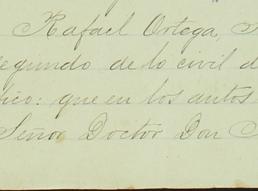 Rafael Ortega,
egundo de lo civil d
ico: que en los autos
Señor Doctor Don